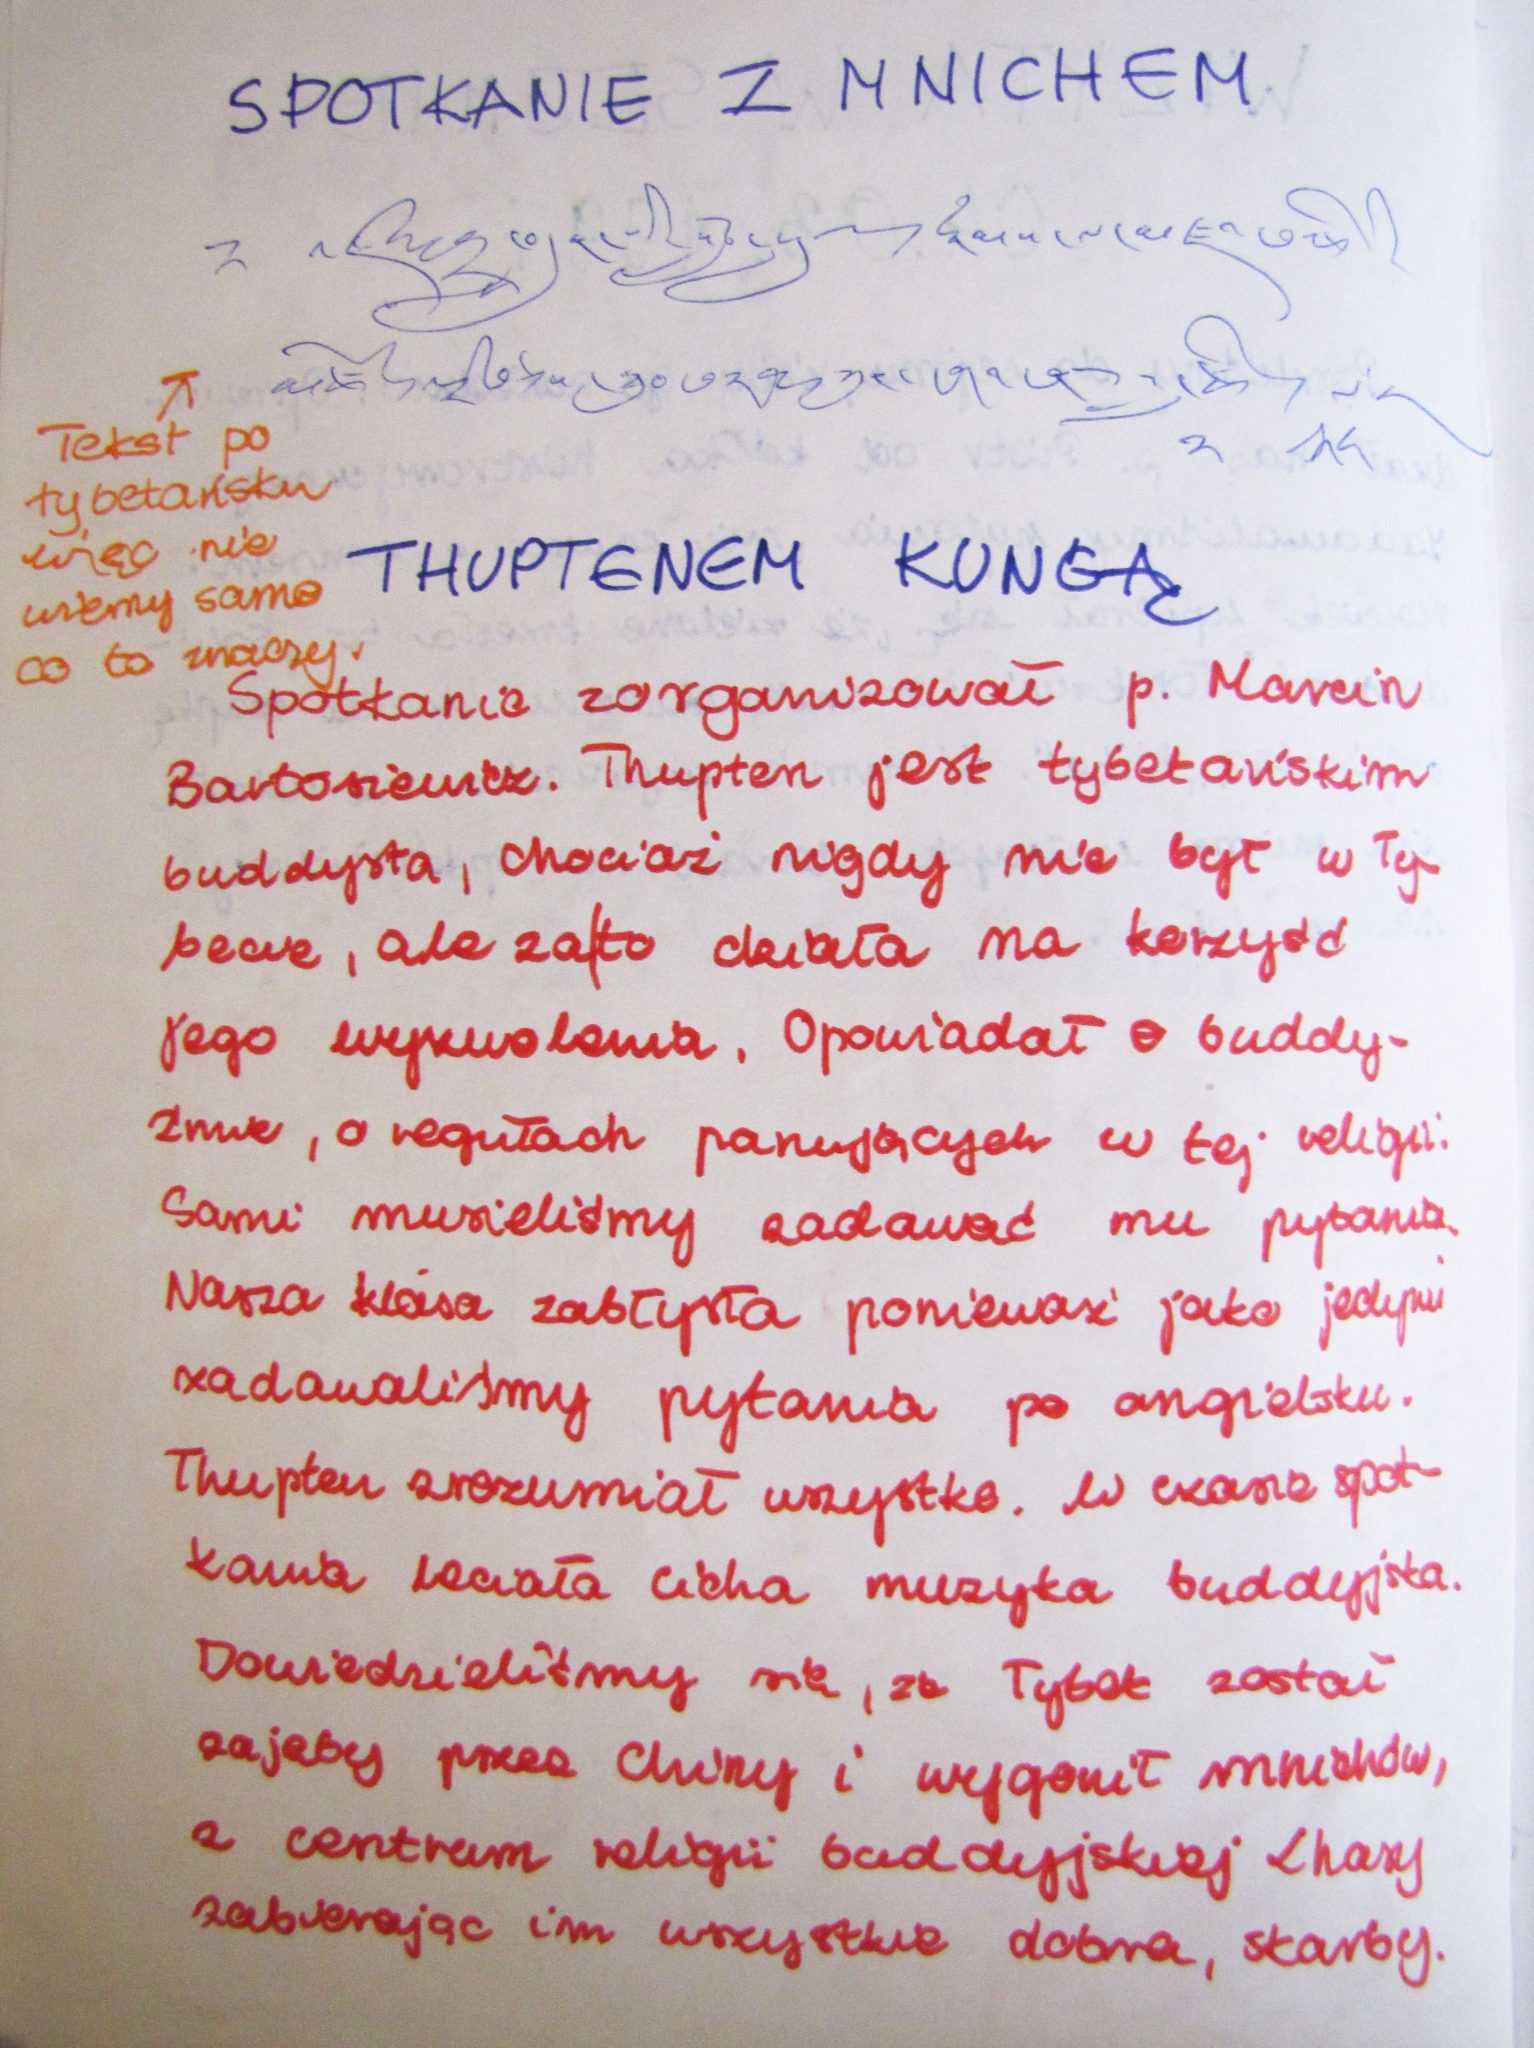 SPOTKANIE Z MNICHEM
Tekst po
tybetańsku
więc nie
wiemy samo
co to znaczy.
THUPTENEM KUNGĄ
Spotkanie zorganizował p. Marcin
Bartosiewicz. Thupten jest tybetańskim
buddystą, chociaż nigdy nie był w Ty-
becie, ale za to działa na korzyść
jego wyzwolenia. Opowiadał o buddy-
zmie, o regułach panujących w tej religii.
Sami musieliśmy zadawać mu pytania.
Nasza klasa zabłysła ponieważ jako jedyni
zadawaliśmy pytania po angielsku.
Thupten zrozumiał wszystko. W czasie spot-
kania leciała cicha muzyka buddyjska.
Dowiedzieliśmy się, że Tybet został
zajęty przez Chiny i wygonił mnichów,
z centrum religii buddyjskiej Lhasy
zabierając im wszystkie dobra, skarby.